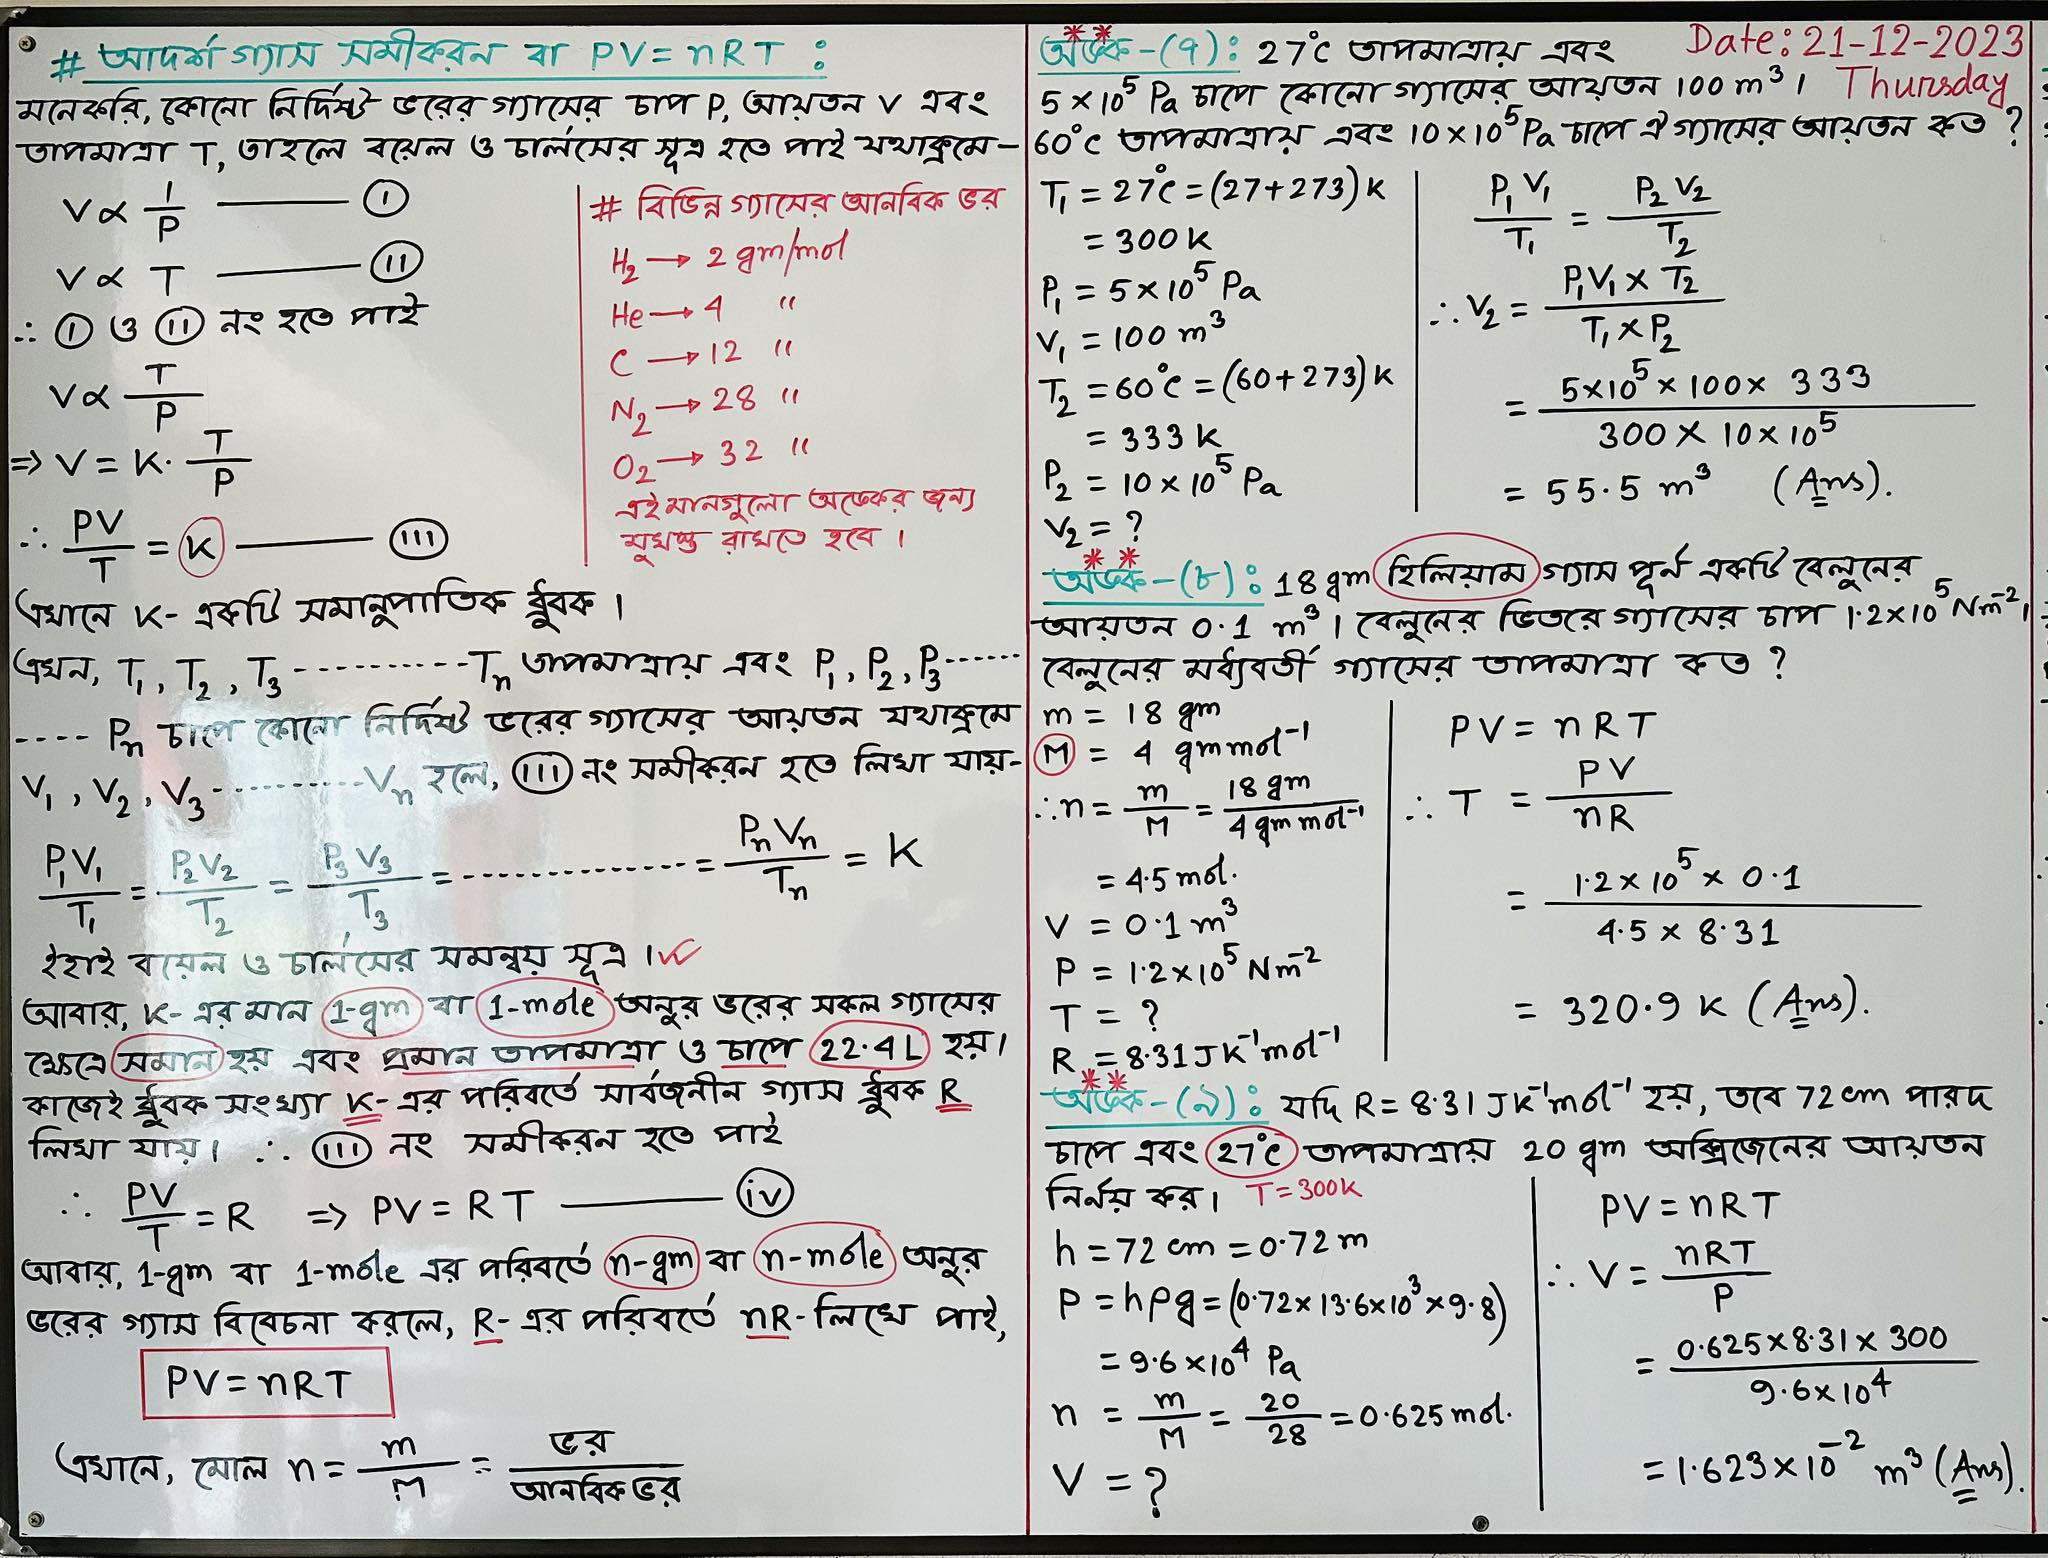 # আদর্শ গ্যাস সমীকরন বা PV = nRT :
মনেকরি, কোনো নির্দিষ্ট ভরের গ্যাসের চাপ P, আয়তন V এবং
তাপমাত্রা T, তাহলে বয়েল ও চার্লসের সূত্র হতে পাই যথাক্রমে—
V ∝ 1/P ——— (I)
V ∝ T ——— (II)
∴ (I) ও (II) নং হতে পাই
V ∝ T/P
⇒ V = K· T/P
∴ PV/T = K ——— (III)
# বিভিন্ন গ্যাসের আনবিক ভর
H₂ → 2 gm/mol
He → 4 "
C → 12 "
N₂ → 28 "
O₂ → 32 "
এই মানগুলো অংকের জন্য
মুখস্ত রাখতে হবে ।
এখানে K- একটি সমানুপাতিক ধ্রুবক ।
এখন, T₁, T₂, T₃ ---------- Tₙ তাপমাত্রায় এবং P₁, P₂, P₃ ------
---- Pₙ চাপে কোনো নির্দিষ্ট ভরের গ্যাসের আয়তন যথাক্রমে
V₁, V₂, V₃ ---------- Vₙ হলে, (III) নং সমীকরন হতে লিখা যায়-
P₁V₁/T₁ = P₂V₂/T₂ = P₃V₃/T₃ = ------------ = PₙVₙ/Tₙ = K
ইহাই বয়েল ও চার্লসের সমন্বয় সূত্র ।
আবার, K- এর মান 1-gm বা 1-mole অনুর ভরের সকল গ্যাসের
ক্ষেত্রে সমান হয় এবং প্রমান তাপমাত্রা ও চাপে 22.4L হয় ।
কাজেই ধ্রুবক সংখ্যা K- এর পরিবর্তে সার্বজনীন গ্যাস ধ্রুবক R
লিখা যায় । ∴ (III) নং সমীকরন হতে পাই
∴ PV/T = R ⇒ PV = RT ——— (iv)
আবার, 1-gm বা 1-mole এর পরিবর্তে n-gm বা n-mole অনুর
ভরের গ্যাস বিবেচনা করলে, R- এর পরিবর্তে nR- লিখে পাই,
PV = nRT
এখানে, মোল n = m/M = ভর/আনবিক ভর
Date: 21-12-2023
Thursday
** অংক-(৭) : 27°C তাপমাত্রায় এবং
5×10⁵ Pa চাপে কোনো গ্যাসের আয়তন 100 m³ ।
60°C তাপমাত্রায় এবং 10×10⁵ Pa চাপে ঐ গ্যাসের আয়তন কত ?
T₁ = 27°C = (27+273) K
= 300 K
P₁ = 5×10⁵ Pa
V₁ = 100 m³
T₂ = 60°C = (60+273) K
= 333 K
P₂ = 10×10⁵ Pa
V₂ = ?
P₁V₁/T₁ = P₂V₂/T₂
∴ V₂ = P₁V₁ × T₂ / T₁ × P₂
= 5×10⁵ × 100 × 333 / 300 × 10×10⁵
= 55.5 m³ (Ans).
** অংক-(৮) : 18 gm হিলিয়াম গ্যাস পূর্ন একটি বেলুনের
আয়তন 0.1 m³ । বেলুনের ভিতরে গ্যাসের চাপ 1.2×10⁵ Nm⁻² ।
বেলুনের মধ্যবর্তী গ্যাসের তাপমাত্রা কত ?
m = 18 gm
M = 4 gm mol⁻¹
∴ n = m/M = 18 gm / 4 gm mol⁻¹
= 4.5 mol.
V = 0.1 m³
P = 1.2×10⁵ Nm⁻²
T = ?
R = 8.31 JK⁻¹mol⁻¹
PV = nRT
∴ T = PV/nR
= 1.2×10⁵ × 0.1 / 4.5 × 8.31
= 320.9 K (Ans).
** অংক-(৯) : যদি R = 8.31 JK⁻¹mol⁻¹ হয়, তবে 72 cm পারদ
চাপে এবং 27°C তাপমাত্রায় 20 gm অক্সিজেনের আয়তন
নির্নয় কর । T = 300K
h = 72 cm = 0.72 m
P = hρg = (0.72×13.6×10³×9.8)
= 9.6×10⁴ Pa
n = m/M = 20/28 = 0.625 mol.
V = ?
PV = nRT
∴ V = nRT/P
= 0.625×8.31×300 / 9.6×10⁴
= 1.623×10⁻² m³ (Ans).